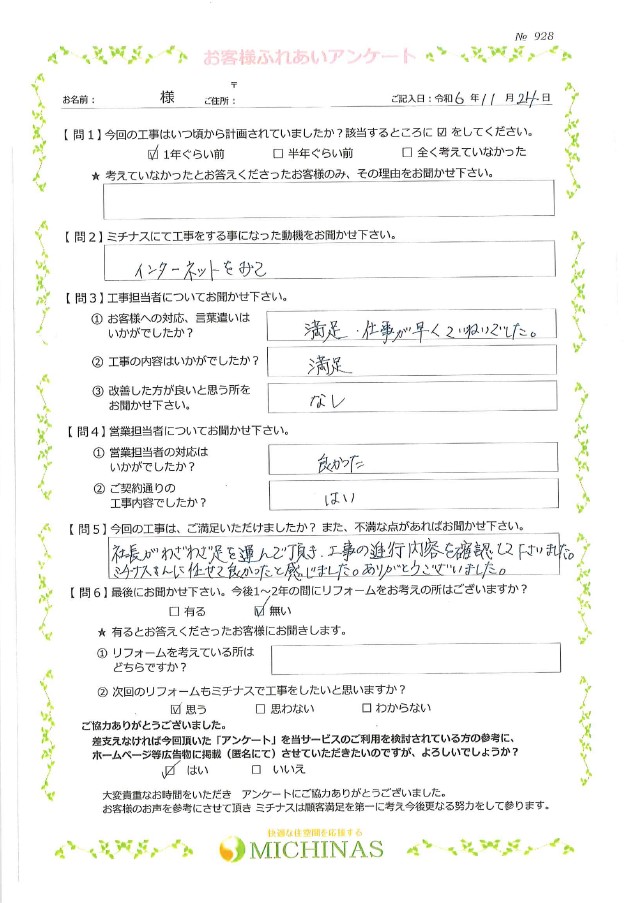 № 928
お客様ふれあいアンケート
お名前： 様 ご住所： 〒 ご記入日：令和 6 年 11 月 24 日
【 問１】今回の工事はいつ頃から計画されていましたか？該当するところに ☑ をしてください。
☑ 1年ぐらい前 □ 半年ぐらい前 □ 全く考えていなかった
★ 考えていなかったとお答えくださったお客様のみ、その理由をお聞かせ下さい。
【 問２】ミチナスにて工事をする事になった動機をお聞かせ下さい。
インターネットをみて
【 問３】工事担当者についてお聞かせ下さい。
① お客様への対応、言葉遣いは
いかがでしたか？
満足・仕事が早くていねいでした。
② 工事の内容はいかがでしたか？
満足
③ 改善した方が良いと思う所を
お聞かせ下さい。
なし
【 問４】営業担当者についてお聞かせ下さい。
① 営業担当者の対応は
いかがでしたか？
良かった
② ご契約通りの
工事内容でしたか？
はい
【 問５】今回の工事は、ご満足いただけましたか？ また、不満な点があればお聞かせ下さい。
社長がわざわざ足を運んで頂き、工事の進行内容を確認して下さいました。
ミチナスさんに任せて良かったと感じました。ありがとうございました。
【 問６】最後にお聞かせ下さい。今後1～2年の間にリフォームをお考えの所はございますか？
□ 有る ☑ 無い
★ 有るとお答えくださったお客様にお聞きします。
① リフォームを考えている所は
どちらですか？
② 次回のリフォームもミチナスで工事をしたいと思いますか？
☑ 思う □ 思わない □ わからない
ご協力ありがとうございました。
差支えなければ今回頂いた「アンケート」を当サービスのご利用を検討されている方の参考に、
ホームページ等広告物に掲載（匿名にて）させていただきたいのですが、よろしいでしょうか？
☑ はい □ いいえ
大変貴重なお時間をいただき アンケートにご協力ありがとうございました。
お客様のお声を参考にさせて頂き ミチナスは顧客満足を第一に考え今後更なる努力をして参ります。
快適な住空間を応援する
MICHINAS